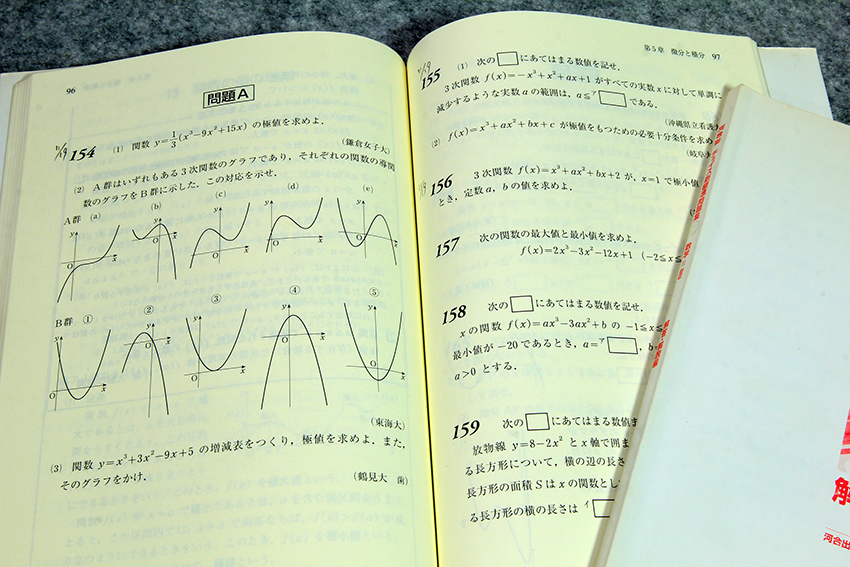 96
問題A
154 (1) 関数 y=1/3(x³−9x²+15x) の極値を求めよ.
(鎌倉女子大)
(2) A群はいずれもある3次関数のグラフであり,それぞれの関数の導関
数のグラフをB群に示した.この対応を示せ.
A群 (a) (b) (c) (d) (e)
y y y y y
O x O x O x O x O x
B群 ① ② ③ ④ ⑤
y y y y y
O x O x O x O x O x
(東海大)
(3) 関数 y=x³+3x²−9x+5 の増減表をつくり,極値を求めよ.また,
そのグラフをかけ.
(鶴見大 歯)
第5章 微分と積分 97
155 (1) 次の□にあてはまる数値を記せ.
3次関数 f(x)=−x³+x²+ax+1 がすべての実数 x に対して単調に
減少するような実数 a の範囲は,a≦ア□である.
(沖縄県立看護
(2) f(x)=x³+ax²+bx+c が極値をもつための必要十分条件を求め
(岐阜
156 3次関数 f(x)=x³+ax²+bx+2 が,x=1 で極小値
とき,定数 a,b の値を求めよ.
157 次の関数の最大値と最小値を求めよ.
f(x)=2x³−3x²−12x+1 (−2≦x≦
158 次の□にあてはまる数値を記せ.
x の関数 f(x)=ax³−3ax²+b の −1≦x≦
最小値が −20 であるとき,a=ア□,b=
a>0 とする.
159 次の□にあてはまる数値ま
放物線 y=8−2x² と x 軸で囲ま
る長方形について,横の辺の長さ
長方形の面積 S は x の関数とし
る長方形の横の長さは イ□
解
河合出